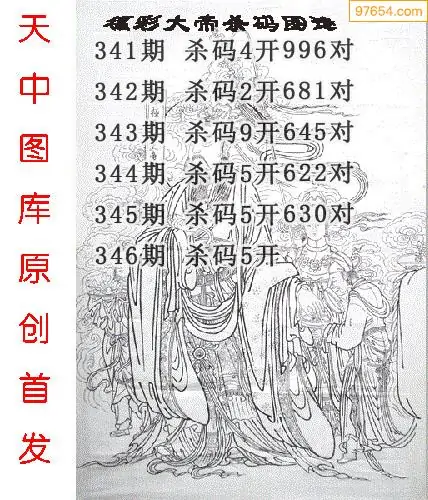 97654.com
福彩大帝杀码图
341期 杀码4开996对
342期 杀码2开681对
343期 杀码9开645对
344期 杀码5开622对
345期 杀码5开630对
346期 杀码5开
天中图库原创首发